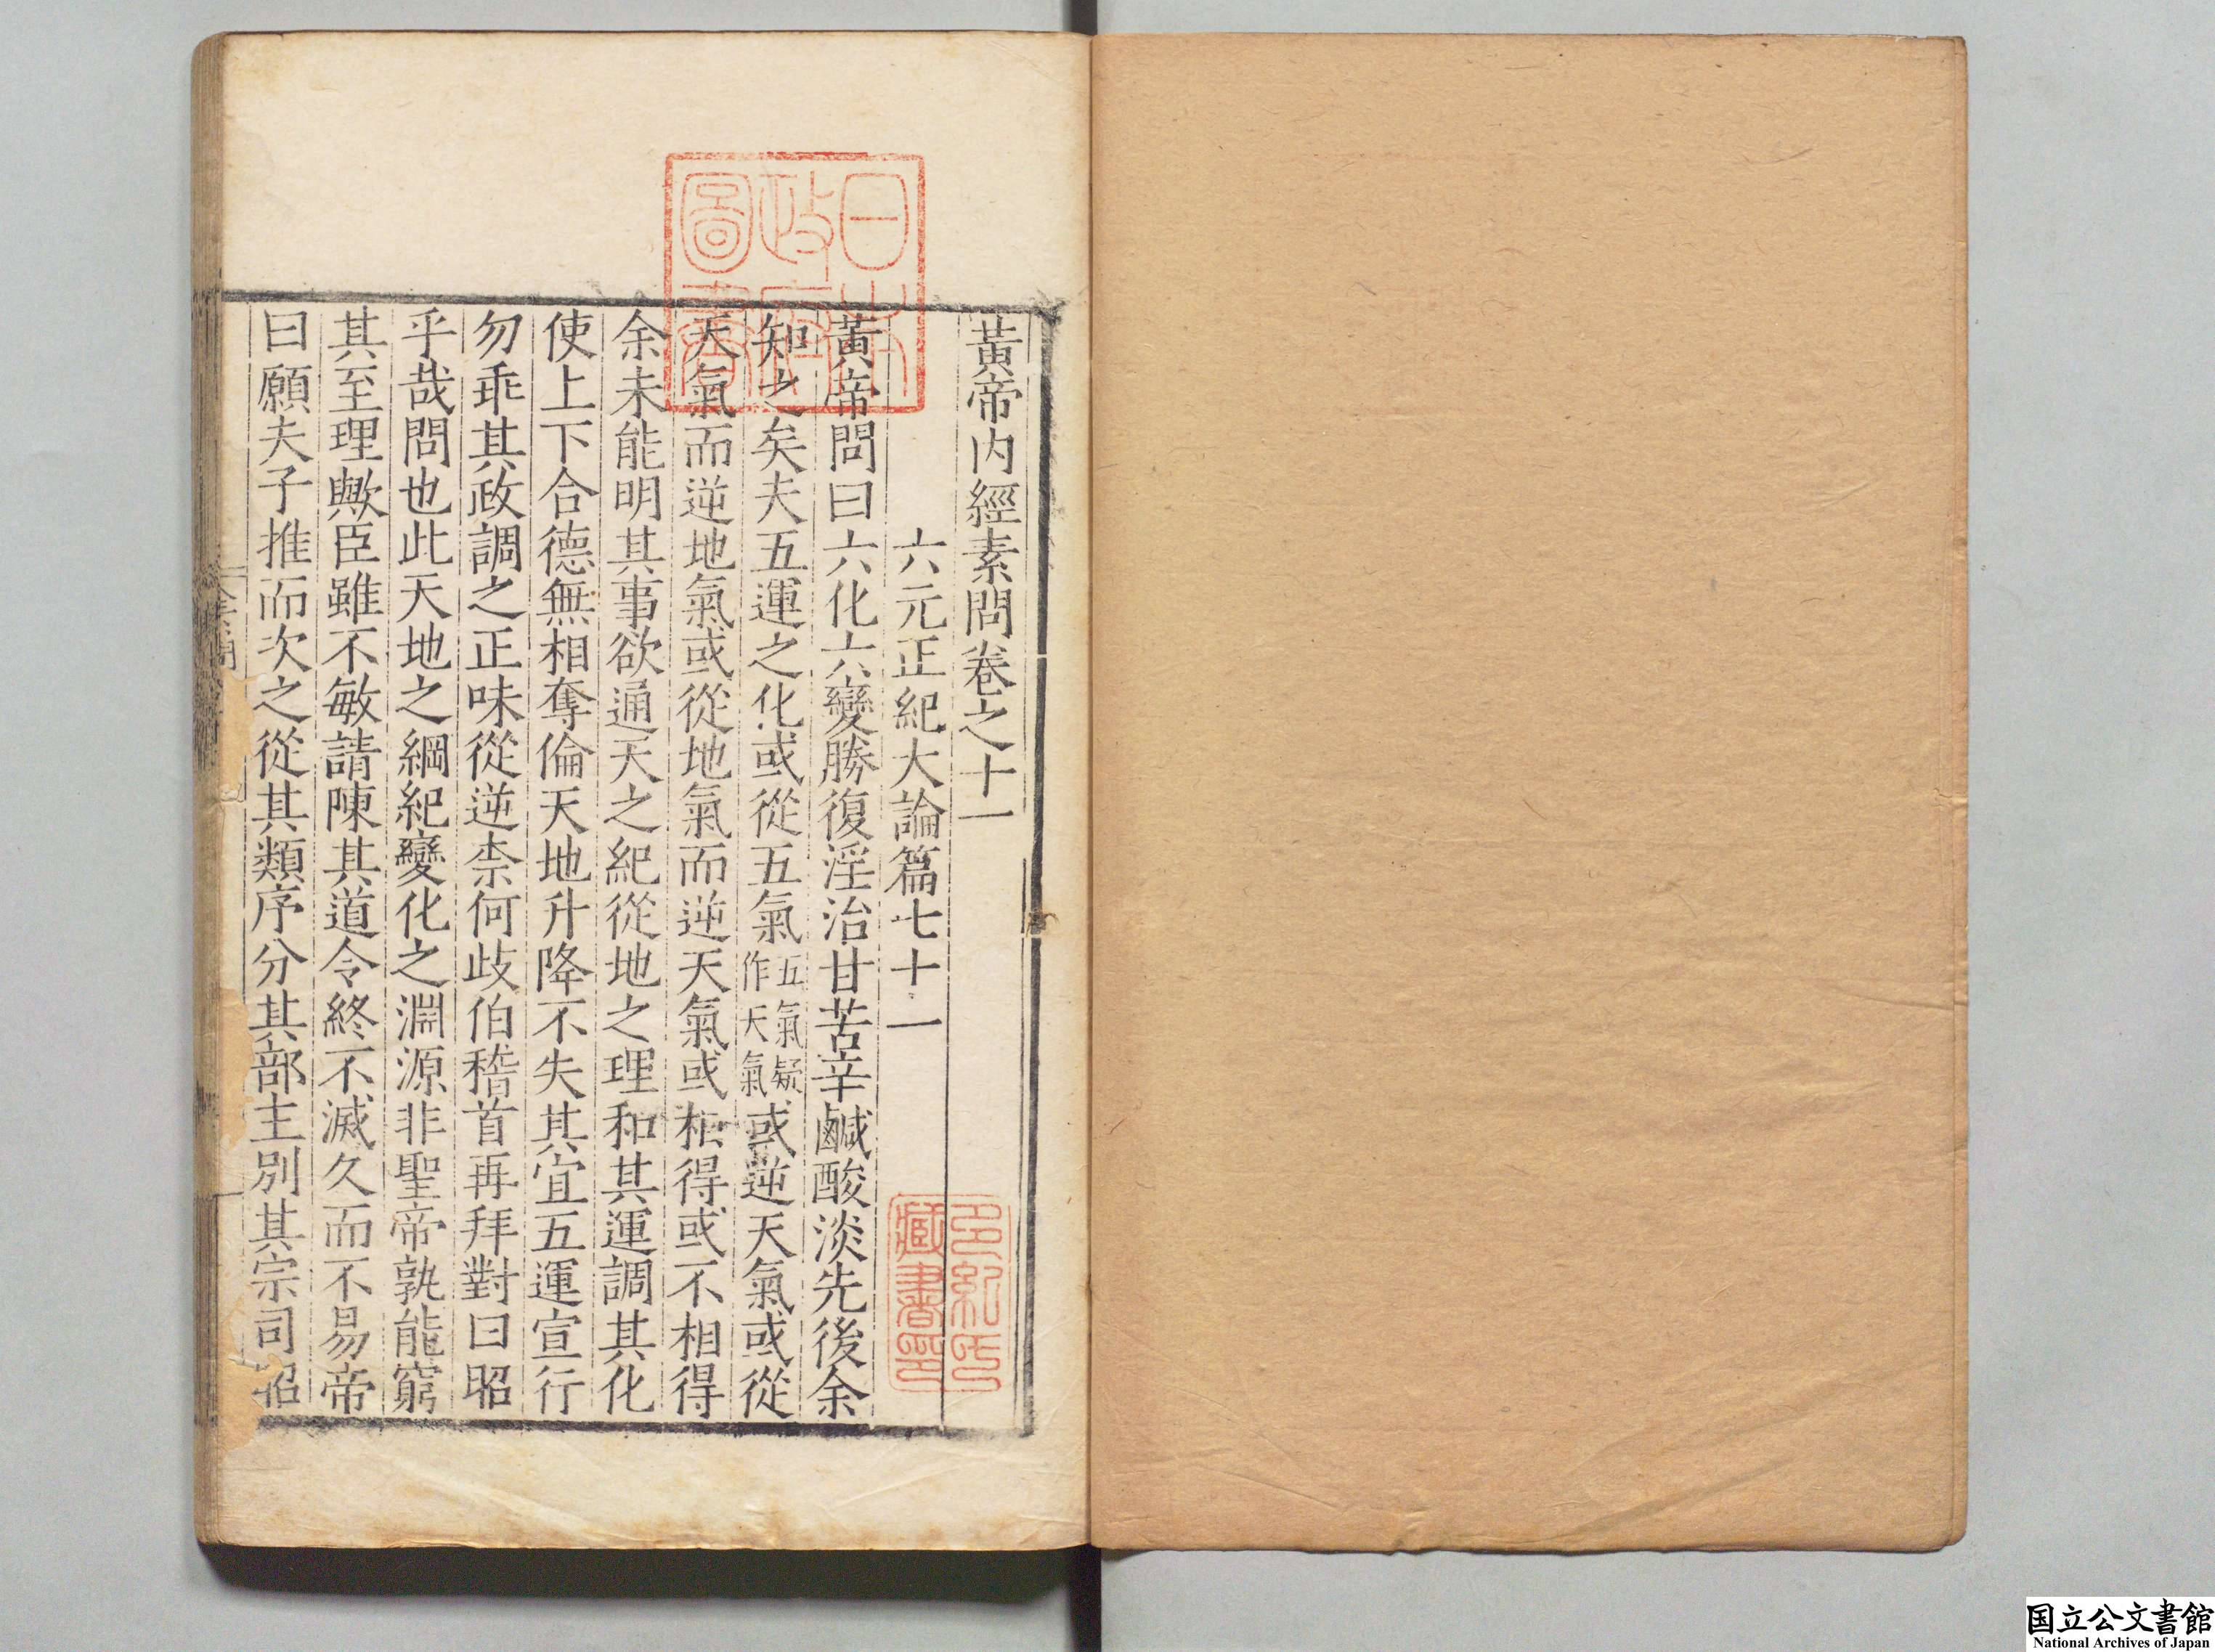 黃帝内經素問卷之十一
六元正紀大論篇七十一
黃帝問曰六化六變勝復淫治甘苦辛鹹酸淡先後余
知之矣夫五運之化或從五氣五氣疑作天氣或逆天氣或從
天氣而逆地氣或從地氣而逆天氣或相得或不相得
余未能明其事欲通天之紀從地之理和其運調其化
使上下合德無相奪倫天地升降不失其宜五運宣行
勿乖其政調之正味從逆柰何歧伯稽首再拜對曰昭
乎哉問也此天地之綱紀變化之淵源非聖帝孰能窮
其至理歟臣雖不敏請陳其道令終不滅久而不易帝
曰願夫子推而次之從其類序分其部主別其宗司昭
日本
政府
圖書
多紀氏
藏書印
国立公文書館
National Archives of Japan